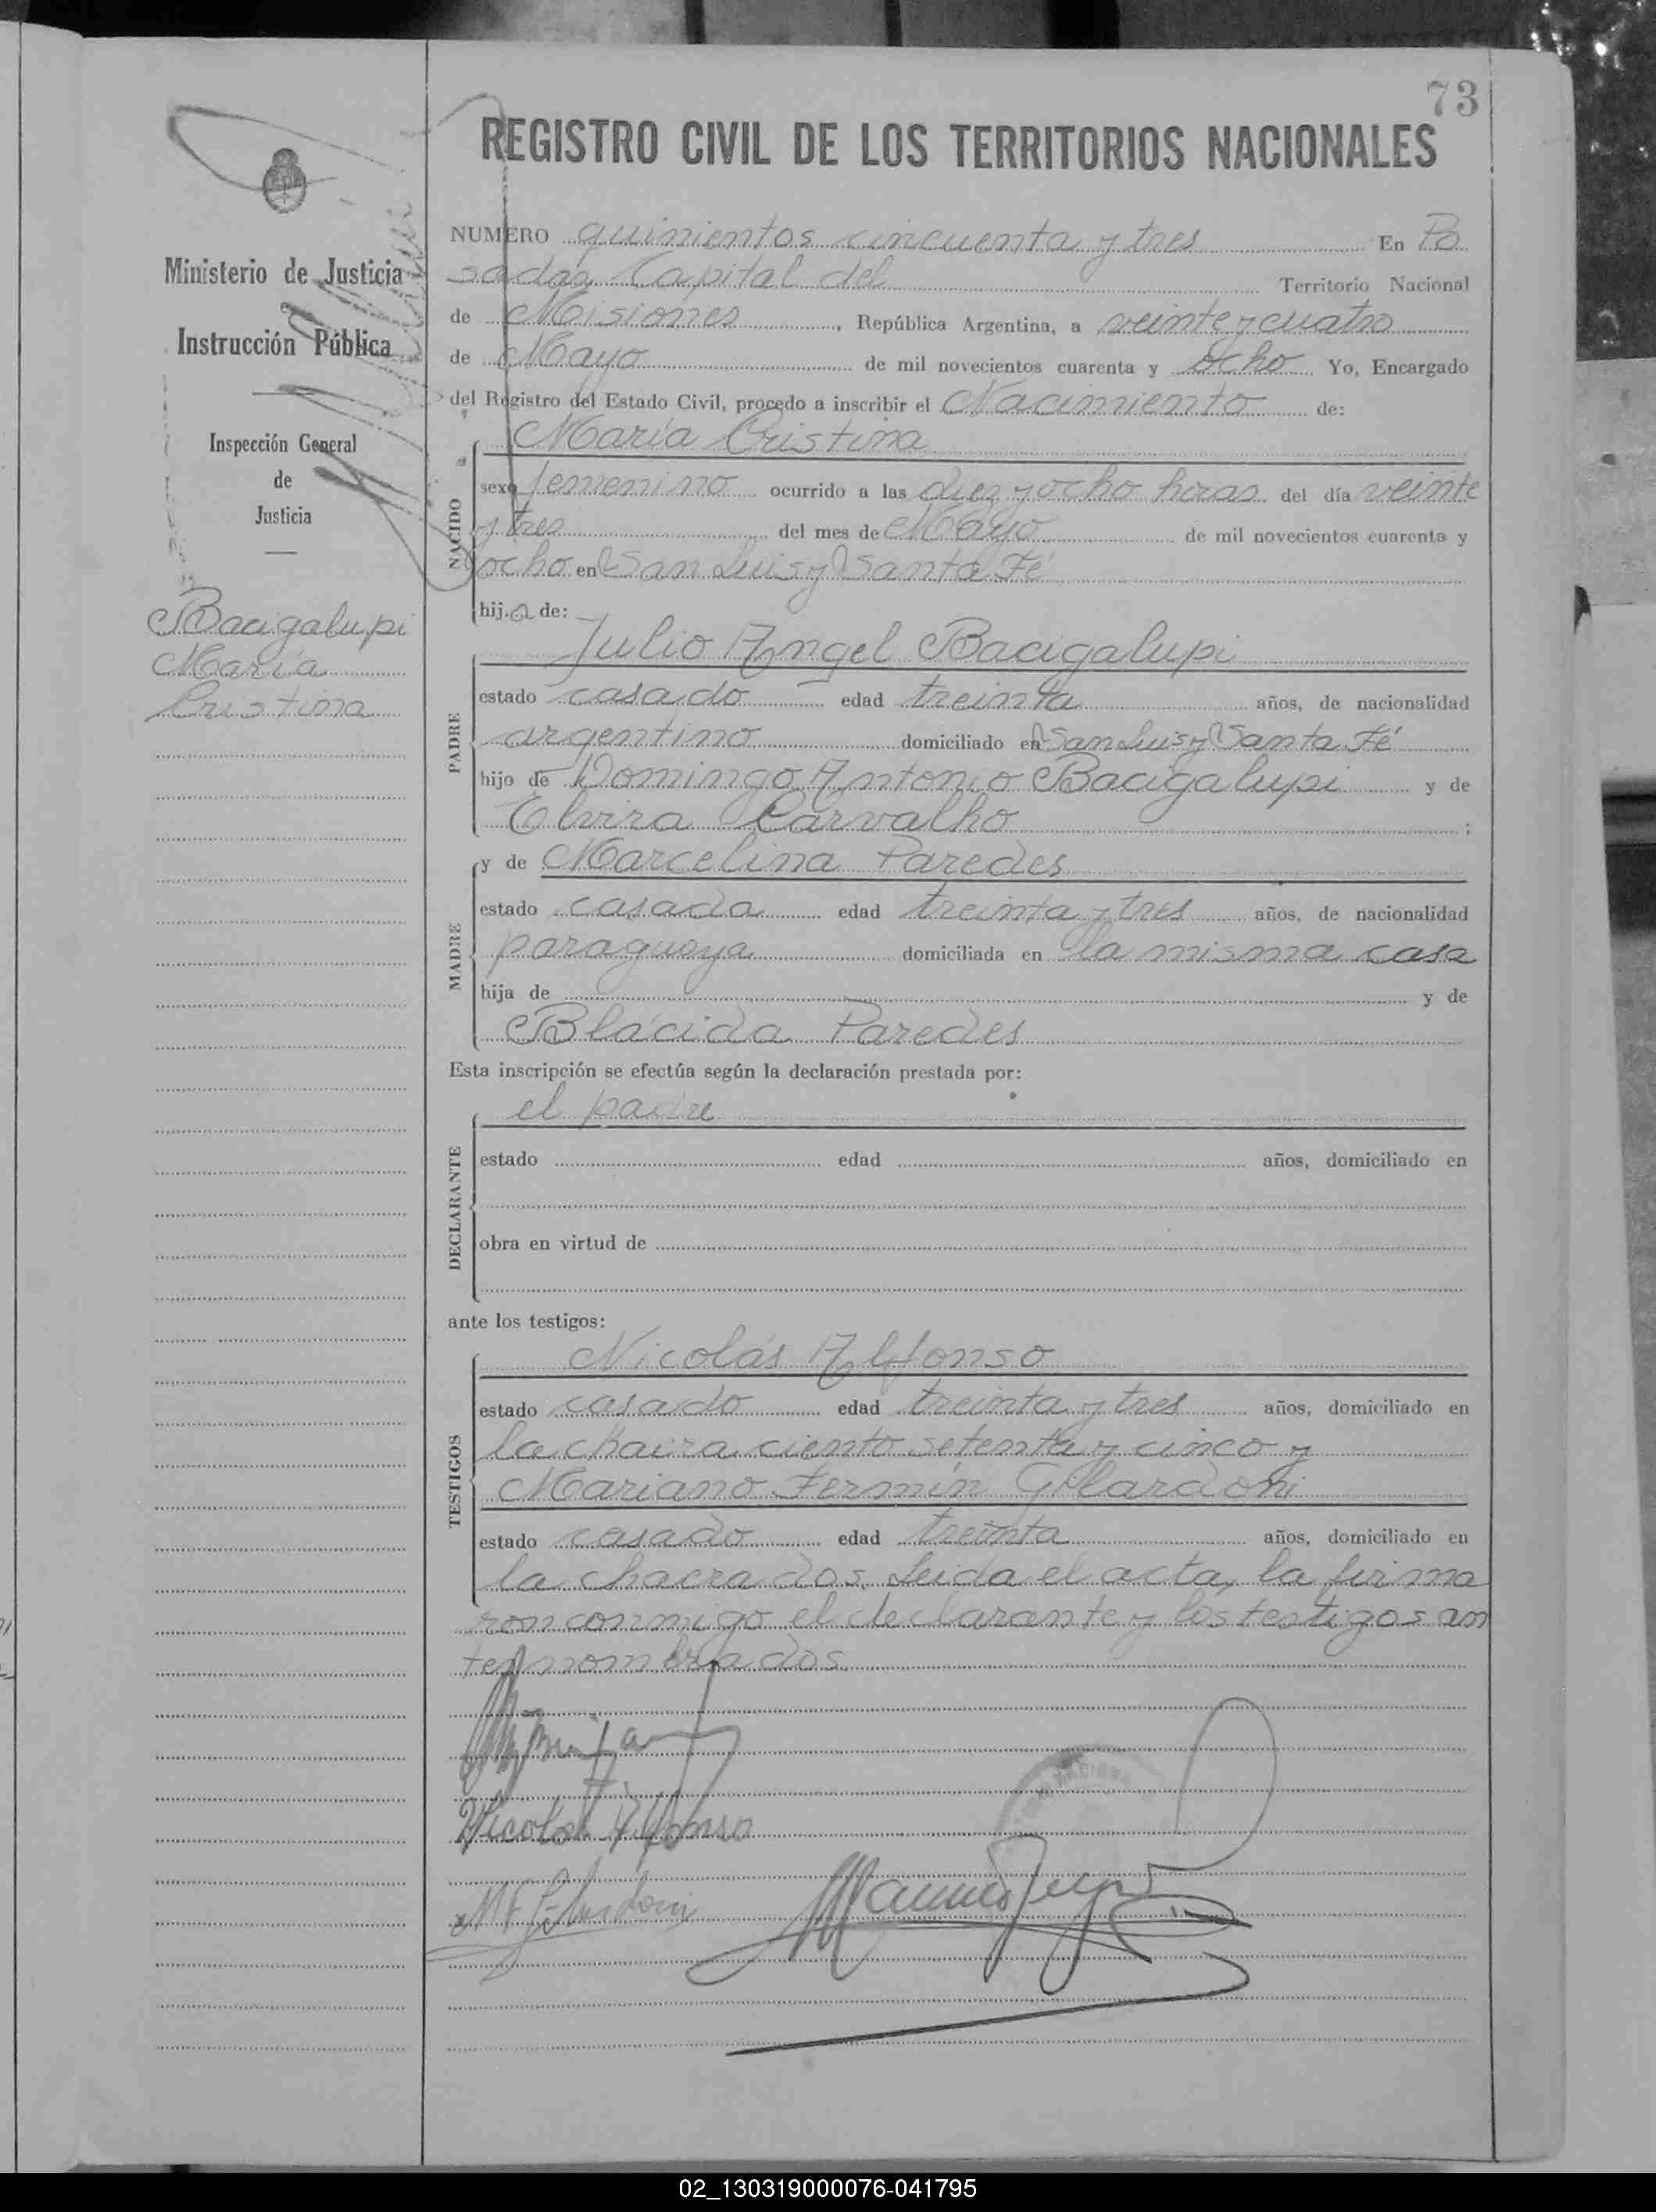 73
REGISTRO CIVIL DE LOS TERRITORIOS NACIONALES
Ministerio de Justicia
Instrucción Pública
Inspección General
de
Justicia
Bacigalupi
María
Cristina
NUMERO quinientos cincuenta y tres En Po
sadas Capital del Territorio Nacional
de Misiones, República Argentina, a veinte y cuatro
de Mayo de mil novecientos cuarenta y ocho Yo, Encargado
del Registro del Estado Civil, procedo a inscribir el Nacimiento de:
NACIDO
María Cristina
sexo femenino ocurrido a las diez y ocho horas del día veinte
y tres del mes de Mayo de mil novecientos cuarenta y
ocho en San Luis y Santa Fé
hija de:
PADRE
Julio Angel Bacigalupi
estado casado edad treinta años, de nacionalidad
argentino domiciliado en San Luis y Santa Fé
hijo de Domingo Antonio Bacigalupi y de
Elvira Carvalho;
MADRE
y de Marcelina Paredes
estado casada edad treinta y tres años, de nacionalidad
paraguaya domiciliada en la misma casa
hija de y de
Blácida Paredes
Esta inscripción se efectúa según la declaración prestada por:
DECLARANTE
el padre
estado edad años, domiciliado en
obra en virtud de
ante los testigos:
TESTIGOS
Nicolás Alfonso
estado casado edad treinta y tres años, domiciliado en
la chacra ciento setenta y cinco y
Mariano Fermín
estado casado edad treinta años, domiciliado en
la chacra dos. Leida el acta, la firma
ron conmigo el declarante y los testigos an
tes nombrados.
Nicolás Alfonso
02_130319000076-041795